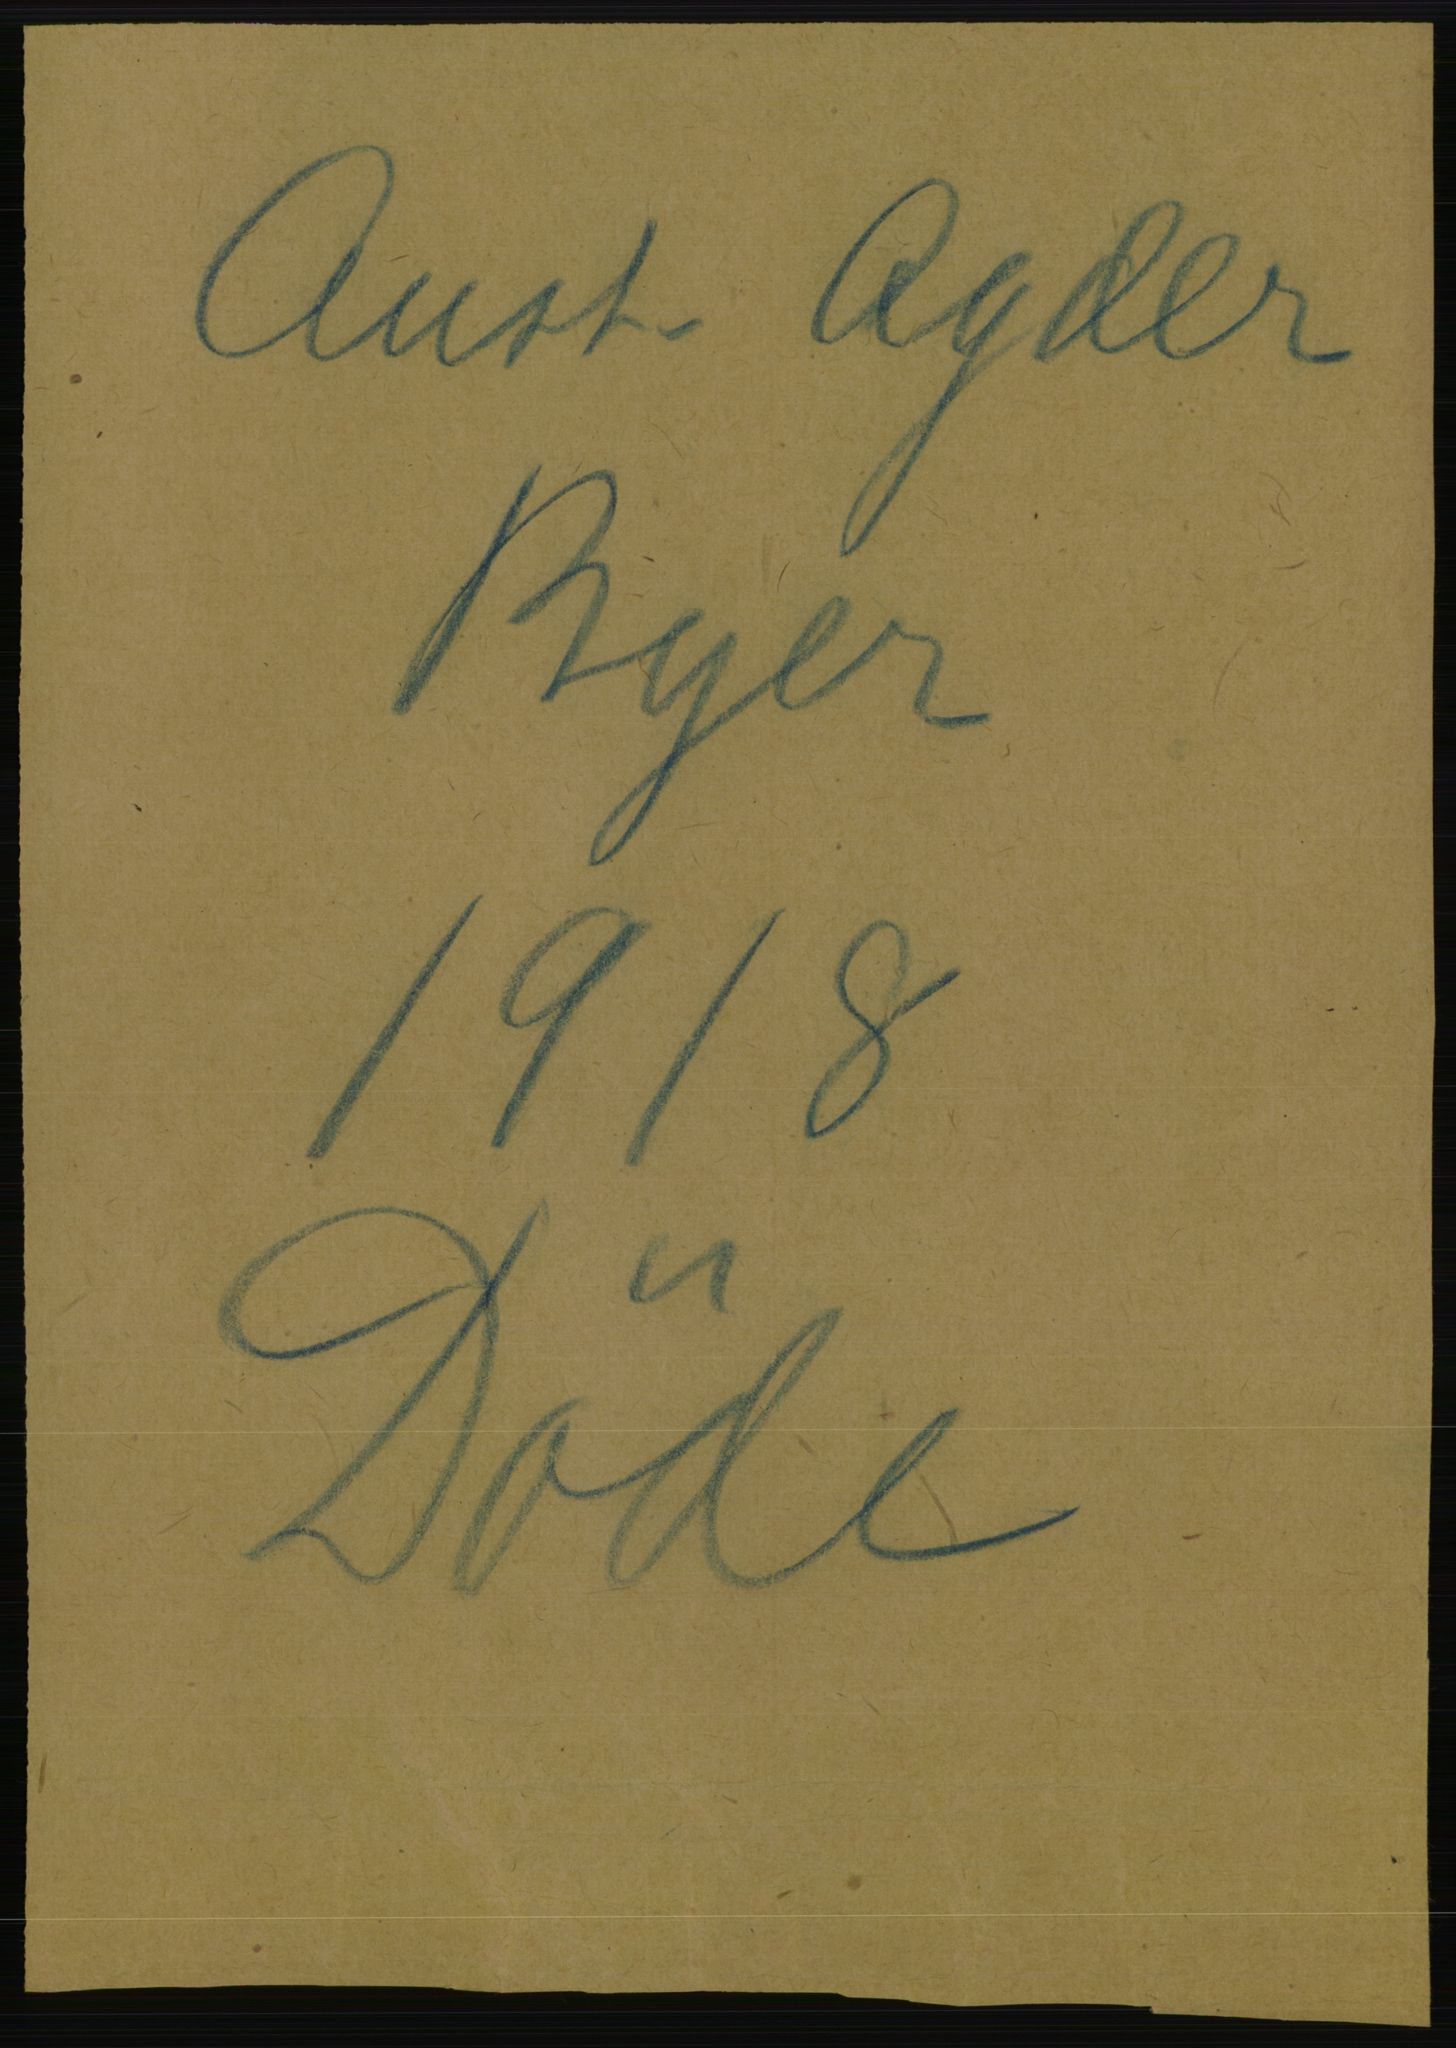 Aust-Agder
Byer
1918
Döde